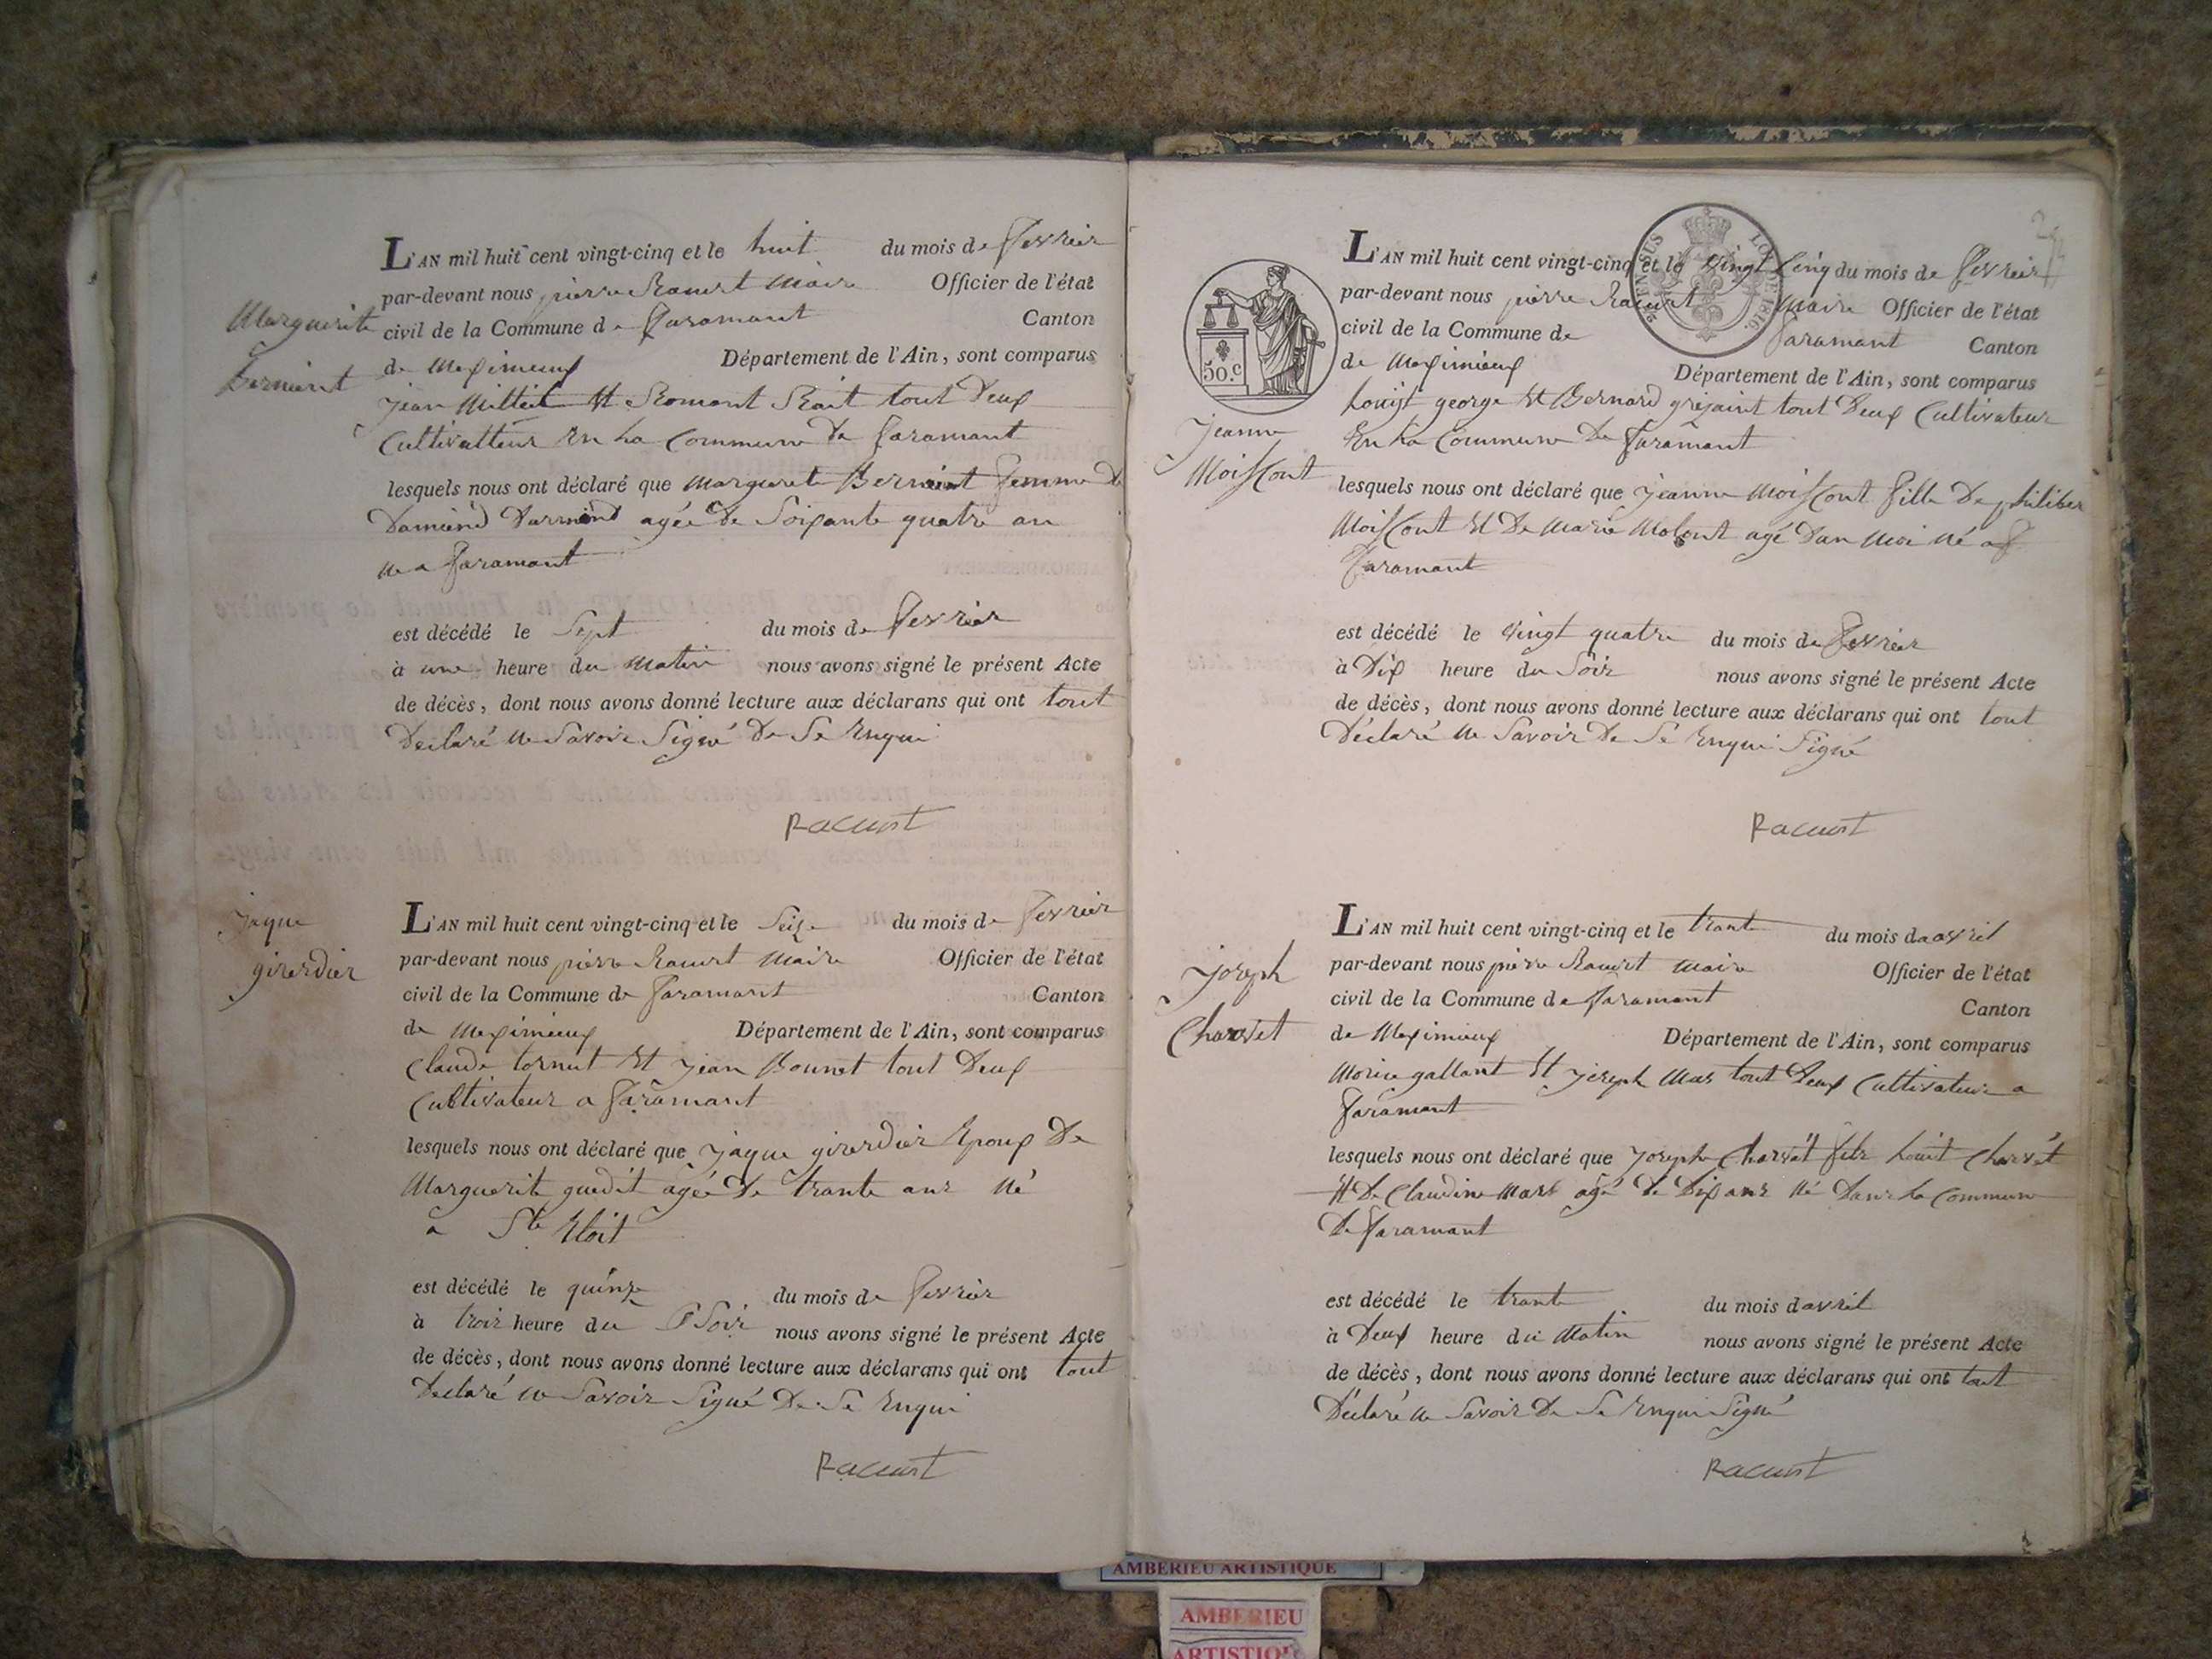 L'AN mil huit cent vingt-cinq et le huit du mois de fevrier
par-devant nous pierre Racurt Maire Officier de l'état
civil de la Commune de faramant Canton
de Meximieux Département de l'Ain, sont comparus
Marguerite
Berniint
jean Millieit Et Romant Rait tout Deux
Cultivatteur En La Commune De faramant
lesquels nous ont déclaré que Marguerite femme De
agée De Soixante quatre an
ne a faramant
est décédé le Sept du mois de fevrier
à une heure du Matin nous avons signé le présent Acte
de décès, dont nous avons donné lecture aux déclarans qui ont tout
Declaré Ne Savoir Signé De Se Enqui
Racurt
jaque
girerdier
L'AN mil huit cent vingt-cinq et le Seize du mois de fevrier
par-devant nous pierre Racurt Maire Officier de l'état
civil de la Commune de faramant Canton
de Meximieux Département de l'Ain, sont comparus
Claude tornut Et jean Bonnet tout Deux
Cultivateur a faramant
lesquels nous ont déclaré que jaque girerdier Epoux De
Marguerite guedit agée De trante anz Né
a Ste Eloit
est décédé le quinze du mois de fevrier
à troiz heure du Soir nous avons signé le présent Acte
de décès, dont nous avons donné lecture aux déclarans qui ont tout
Declaré Ne Savoir Signé De Se Enqui
Racurt
50.C
EN SUS
LOI DE 1816.
L'AN mil huit cent vingt-cinq et le vingt Cinq du mois de fevrier
par-devant nous pierre Racurt Maire Officier de l'état
civil de la Commune de faramant Canton
de Meximieux Département de l'Ain, sont comparus
Jeanne
Moisscont
Louist george Et Bernard grejaint tout Deux Cultivateur
En La Commune De faramant
lesquels nous ont déclaré que jeanne Moisscont fille De philiber
Moisscont Et De Marie agé Dun Moi Né a
faramant
est décédé le vingt quatre du mois de fevrier
à Dix heure du Soir nous avons signé le présent Acte
de décès, dont nous avons donné lecture aux déclarans qui ont tout
Déclaré Ne Savoir De Se Enqui Signé
Racurt
joseph
Charvet
L'AN mil huit cent vingt-cinq et le trante du mois da avril
par-devant nous pierre Racurt Maire Officier de l'état
civil de la Commune de faramant Canton
de Meximieux Département de l'Ain, sont comparus
Morice gallant Et joseph Mas tout Deux Cultivateur a
faramant
lesquels nous ont déclaré que joseph Charvet filz Louit Charvet
Et De Claudine Mars agé De Dix anz Né Dans La Commune
De faramant
est décédé le trante du mois davril
à Deux heure du Matin nous avons signé le présent Acte
de décès, dont nous avons donné lecture aux déclarans qui ont tout
Déclaré Ne Savoir De Se Enqui Signé
Racurt
AMBERIEU ARTISTIQUE
AMBERIEU